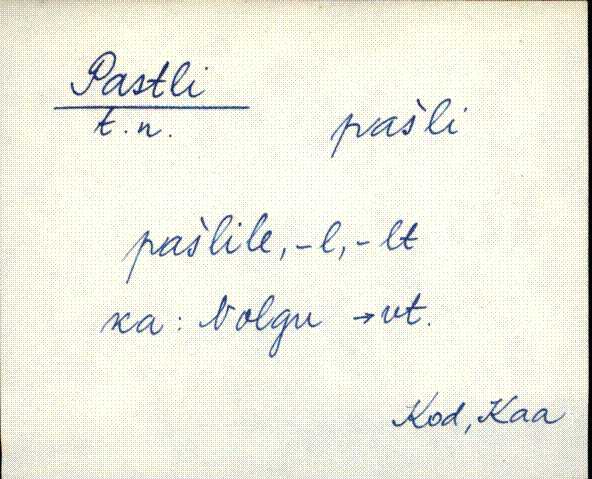 Pastli
t.n.
pašli
pašlile, -l, -lt
ka: Nolgu → vt.
Kod, Kaa